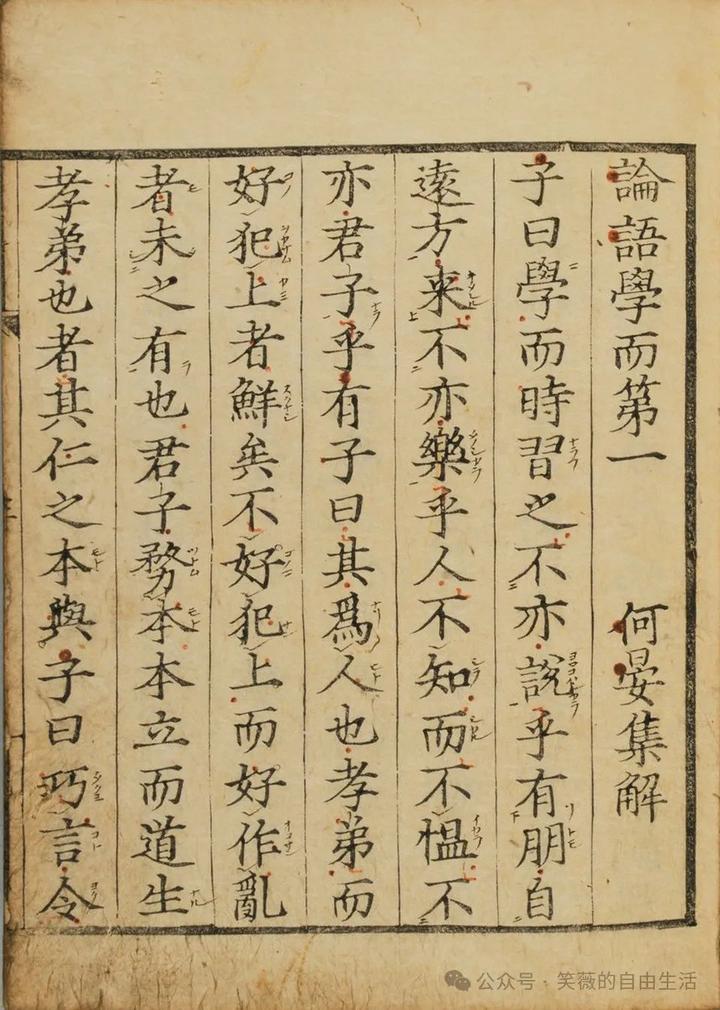 論語學而第一　何晏集解
子曰學而時習之不亦說乎有朋自
遠方來不亦樂乎人不知而不愠不
亦君子乎有子曰其爲人也孝弟而
好犯上者鮮矣不好犯上而好作亂
者未之有也君子務本本立而道生
孝弟也者其仁之本與子曰巧言令
公众号·笑薇的自由生活